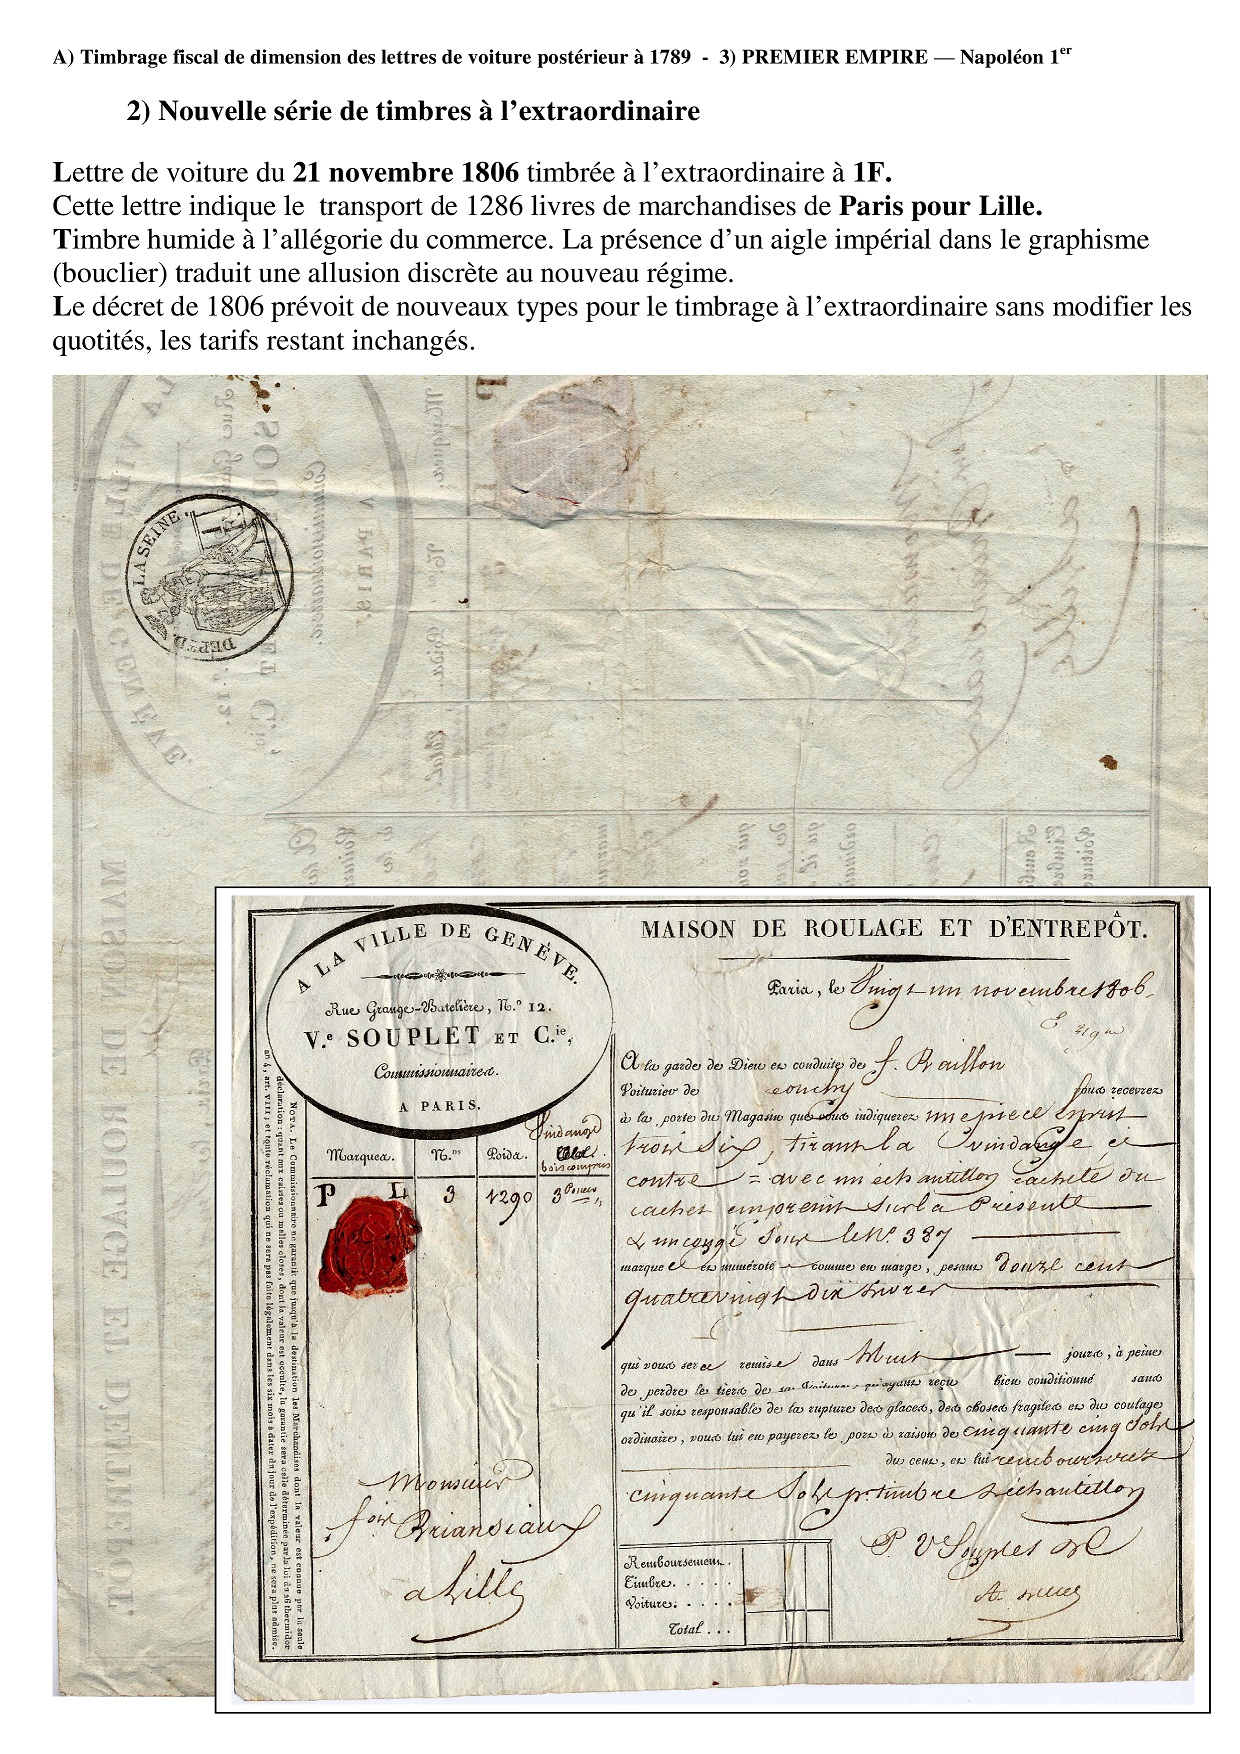 A) Timbrage fiscal de dimension des lettres de voiture postérieur à 1789 - 3) PREMIER EMPIRE — Napoléon 1er
2) Nouvelle série de timbres à l’extraordinaire
Lettre de voiture du 21 novembre 1806 timbrée à l’extraordinaire à 1F.
Cette lettre indique le transport de 1286 livres de marchandises de Paris pour Lille.
Timbre humide à l’allégorie du commerce. La présence d’un aigle impérial dans le graphisme
(bouclier) traduit une allusion discrète au nouveau régime.
Le décret de 1806 prévoit de nouveaux types pour le timbrage à l’extraordinaire sans modifier les
quotités, les tarifs restant inchangés.
DEPT. D. LA SEINE.
A LA VILLE DE GENÈVE.
Rue Grange-Batelière, N.º 12.
V.e SOUPLET ET C.ie,
Commissionnaires.
A PARIS.
MAISON DE ROULAGE ET D'ENTREPÔT.
Paris, le Vingt un novembre 1806
A la garde de Dieu et conduite de f. Raillon
Voiturier de couchy vous recevrez
à la porte du Magasin que vous indiquerez une piece Esprit
trois Six, tirant la vindange ci
contre = avec un échantillon cacheté du
cachet empreint sur la Présente
& un congé Sous le Nº 387
marqué et numéroté comme en marge, pesant douze cent
quatrevingt dix Livres
qui vous sera remise dans Huit jours, à peine
de perdre le tiers de sa Voiture, qu'ayant reçu bien conditionné sans
qu'il soit responsable de la rupture des glaces, des choses fragiles et du coulage
ordinaire, vous lui en payerez le port à raison de cinquante cinq Sols
du cent, et lui rembourserez
cinquante Sols pr. timbre & échantillon
P. V Souplet &C
Marques. N.os Poids. Vindange
bois compris
P L 3 1290 3 Pouces
NOTA. Le Commissionnaire ne garantit que jusqu'à la destination les Marchandises dont la valeur est connue par la seule
déclaration: quant aux caisses ou malles closes, dont la valeur est occulte, la garantie sera celle déterminée par la loi du 26 thermidor
an 4, art. VIII; et toute réclamation qui ne sera pas faite légalement dans les six mois à dater du jour de l'expédition, ne sera plus admise.
Monsieur
Briansiaux
a Lille
Remboursement.
Timbre.
Voiture.
Total